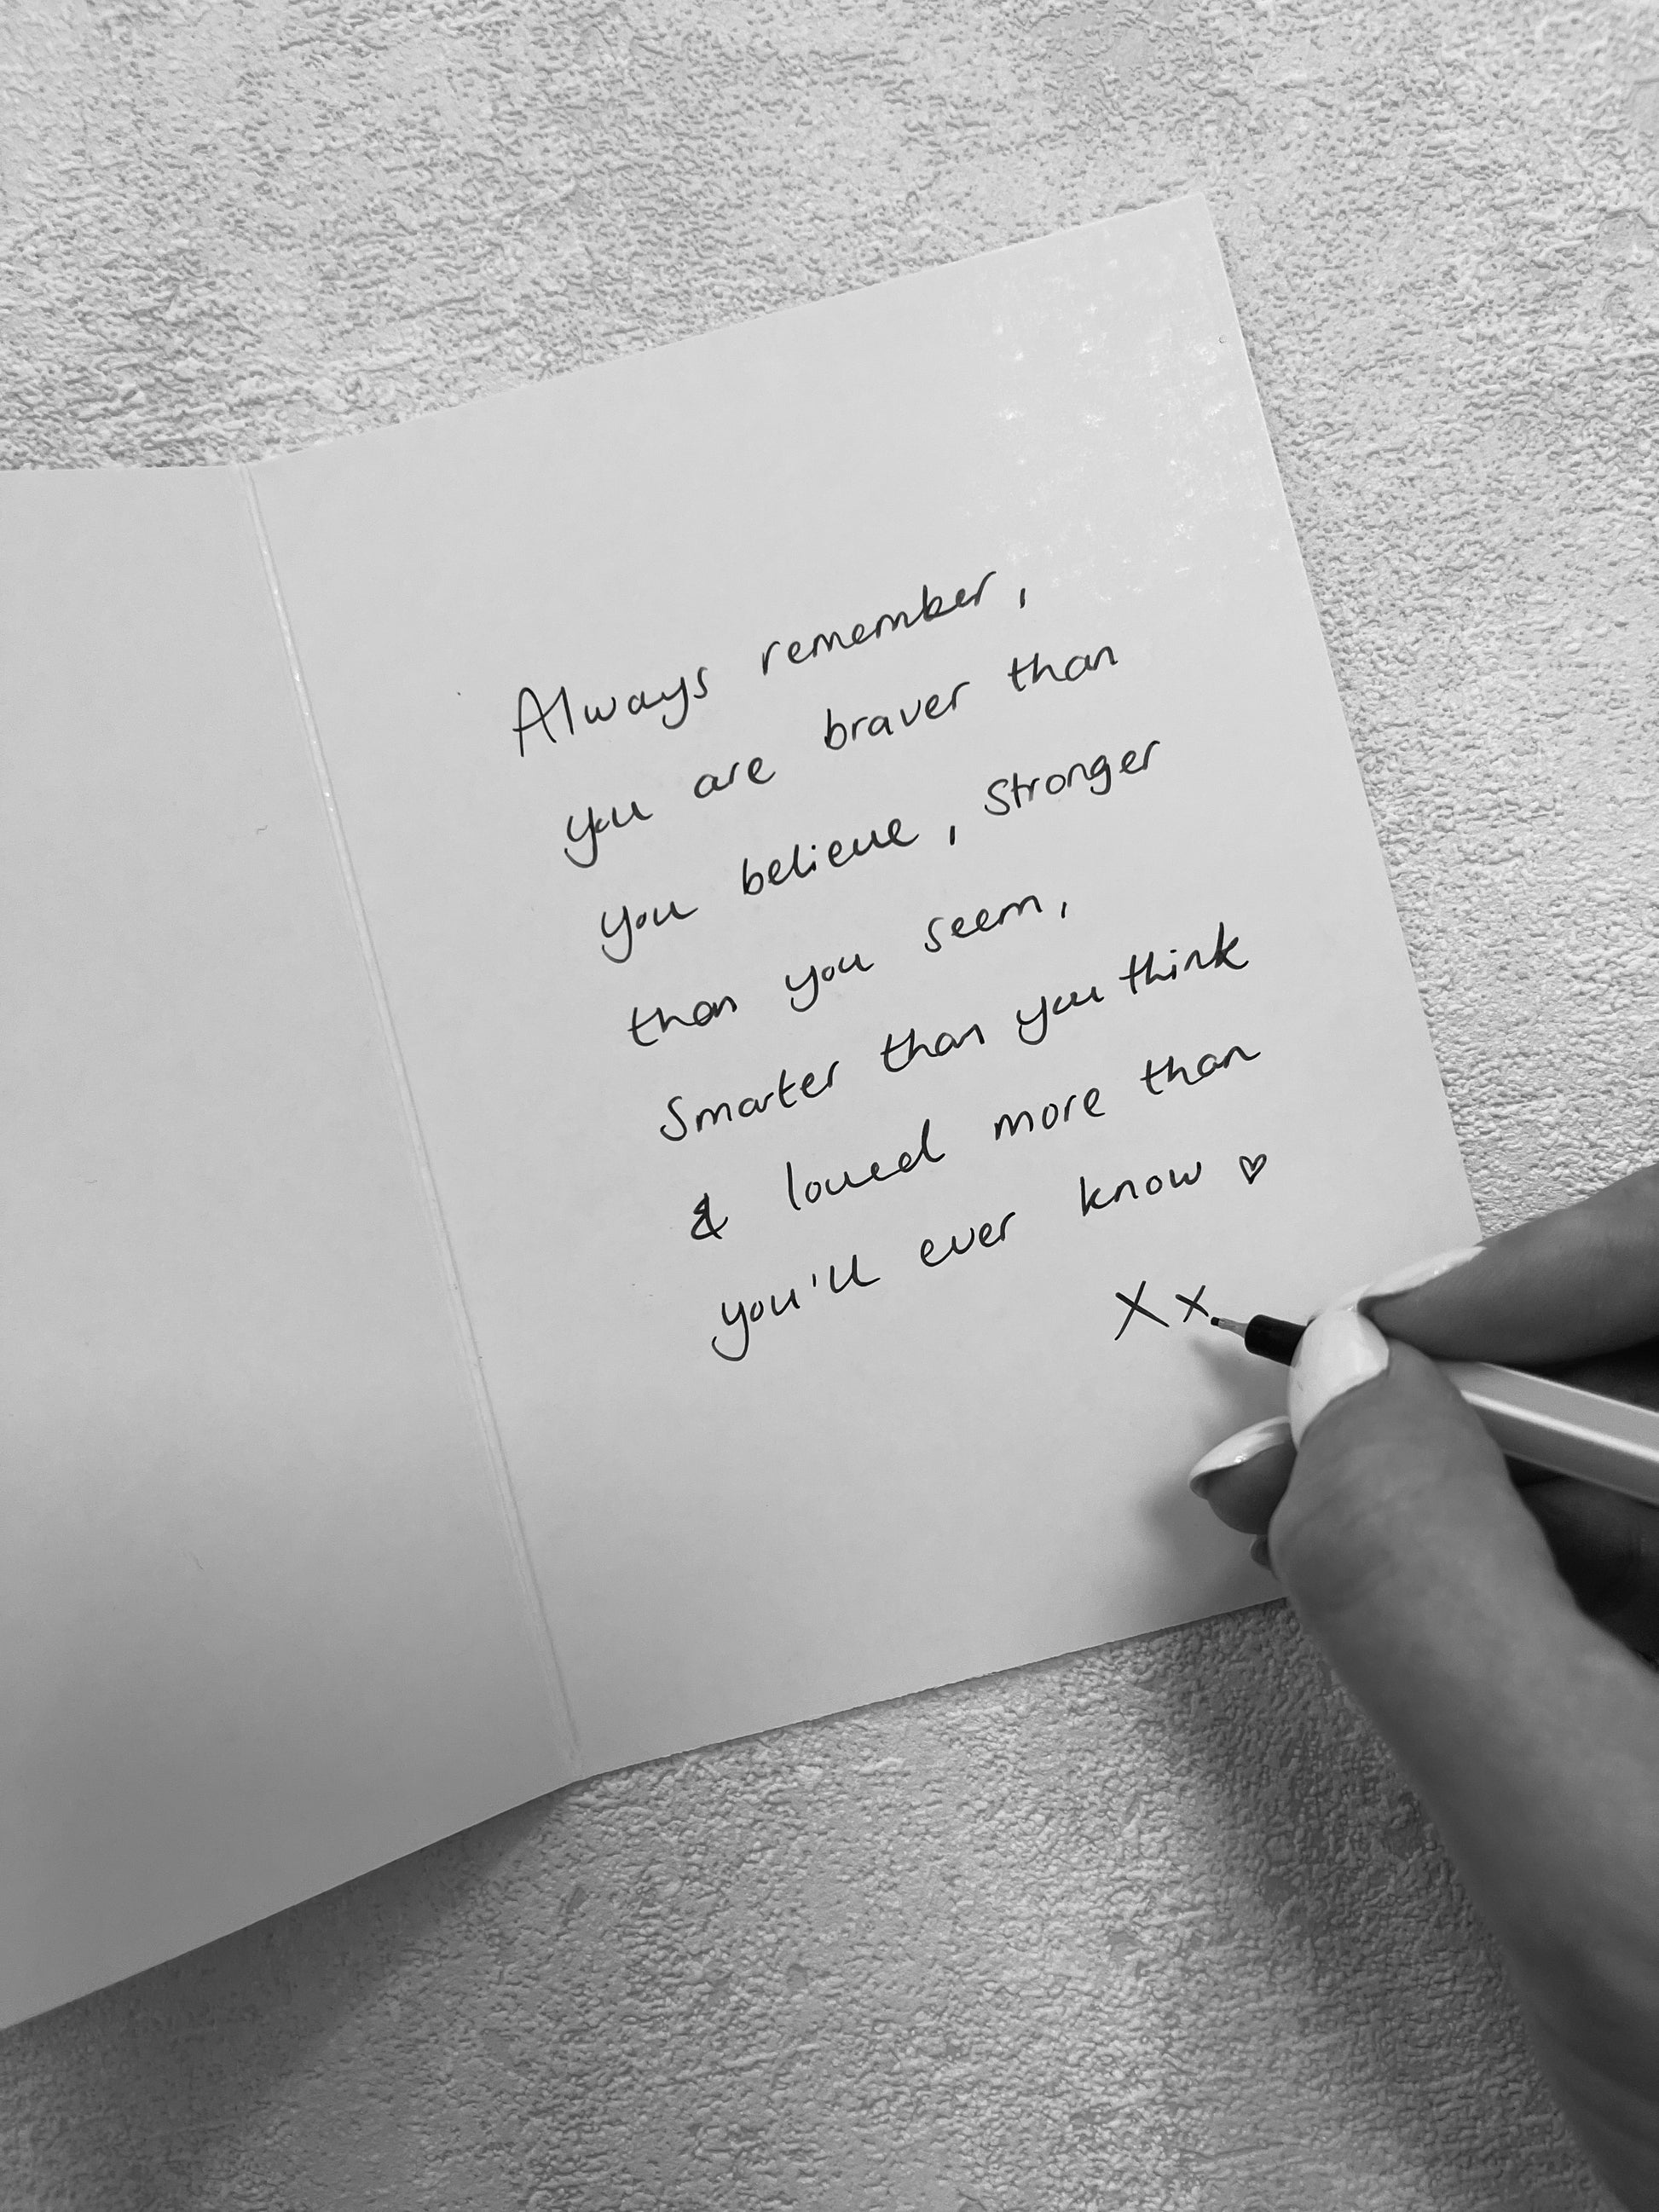 Always remember,
you are braver than
you believe, stronger
than you seem,
Smarter than you think
& loved more than
you'll ever know ♡
Xx